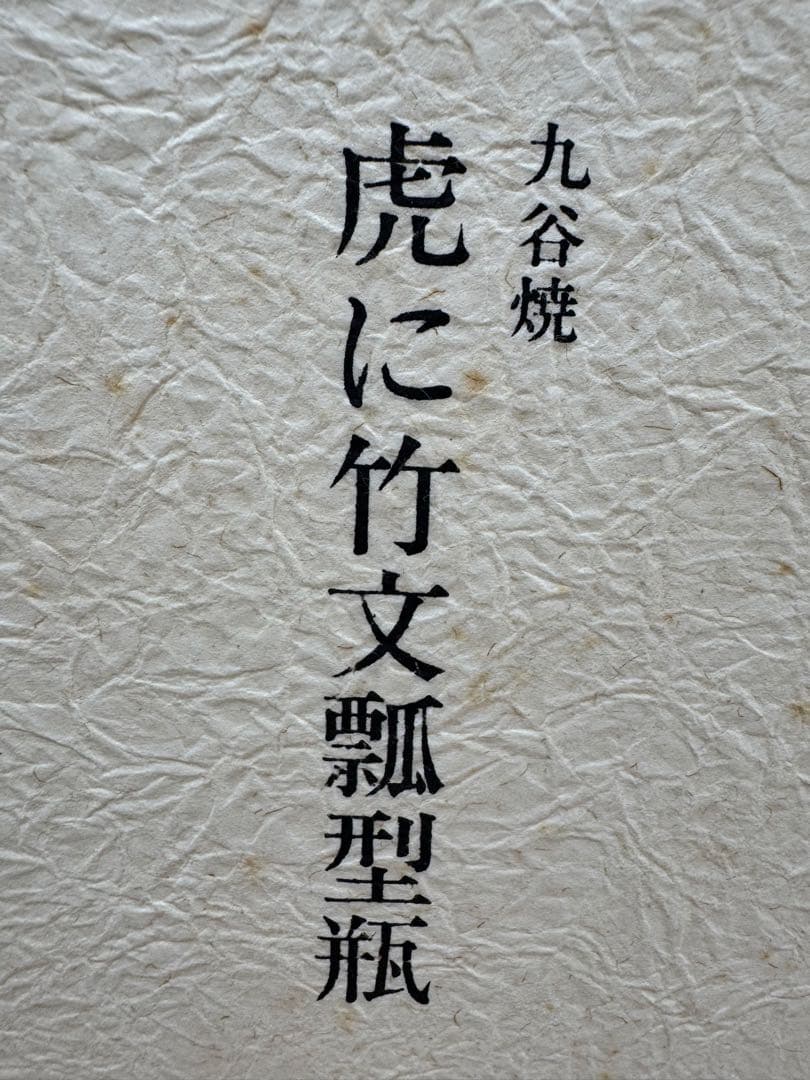 九谷焼
虎に竹文瓢型瓶